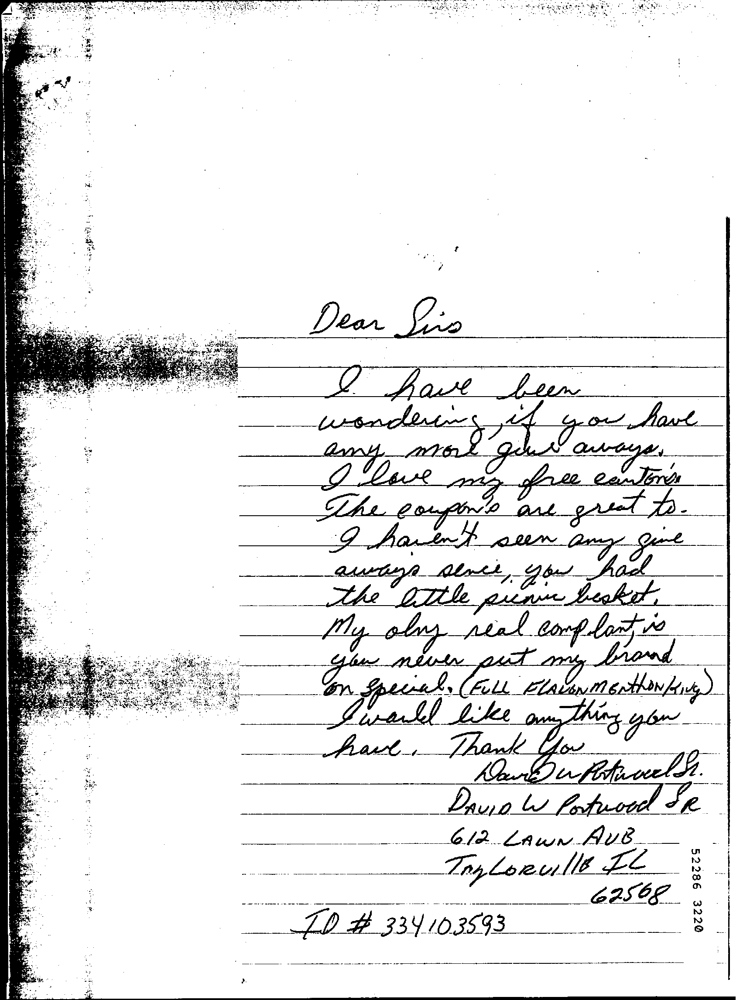 Dear Sirs
I have been
wondering, if you have
amy more give aways.
I love my free carton's.
The coupon's are great to.
I haven't seen any give
aways sence, you had
the little picnic besket.
My olny real complant, is
you never put my brand
on special. (FULL FLAVOR MENTHOL/King)
I would like anything you
have. Thank You
David W Portwood Sr.
DAVID W Portwood SR
612 LAWN AVE
TAYLORVIllE IL
62568
ID # 334103593
52286 3220